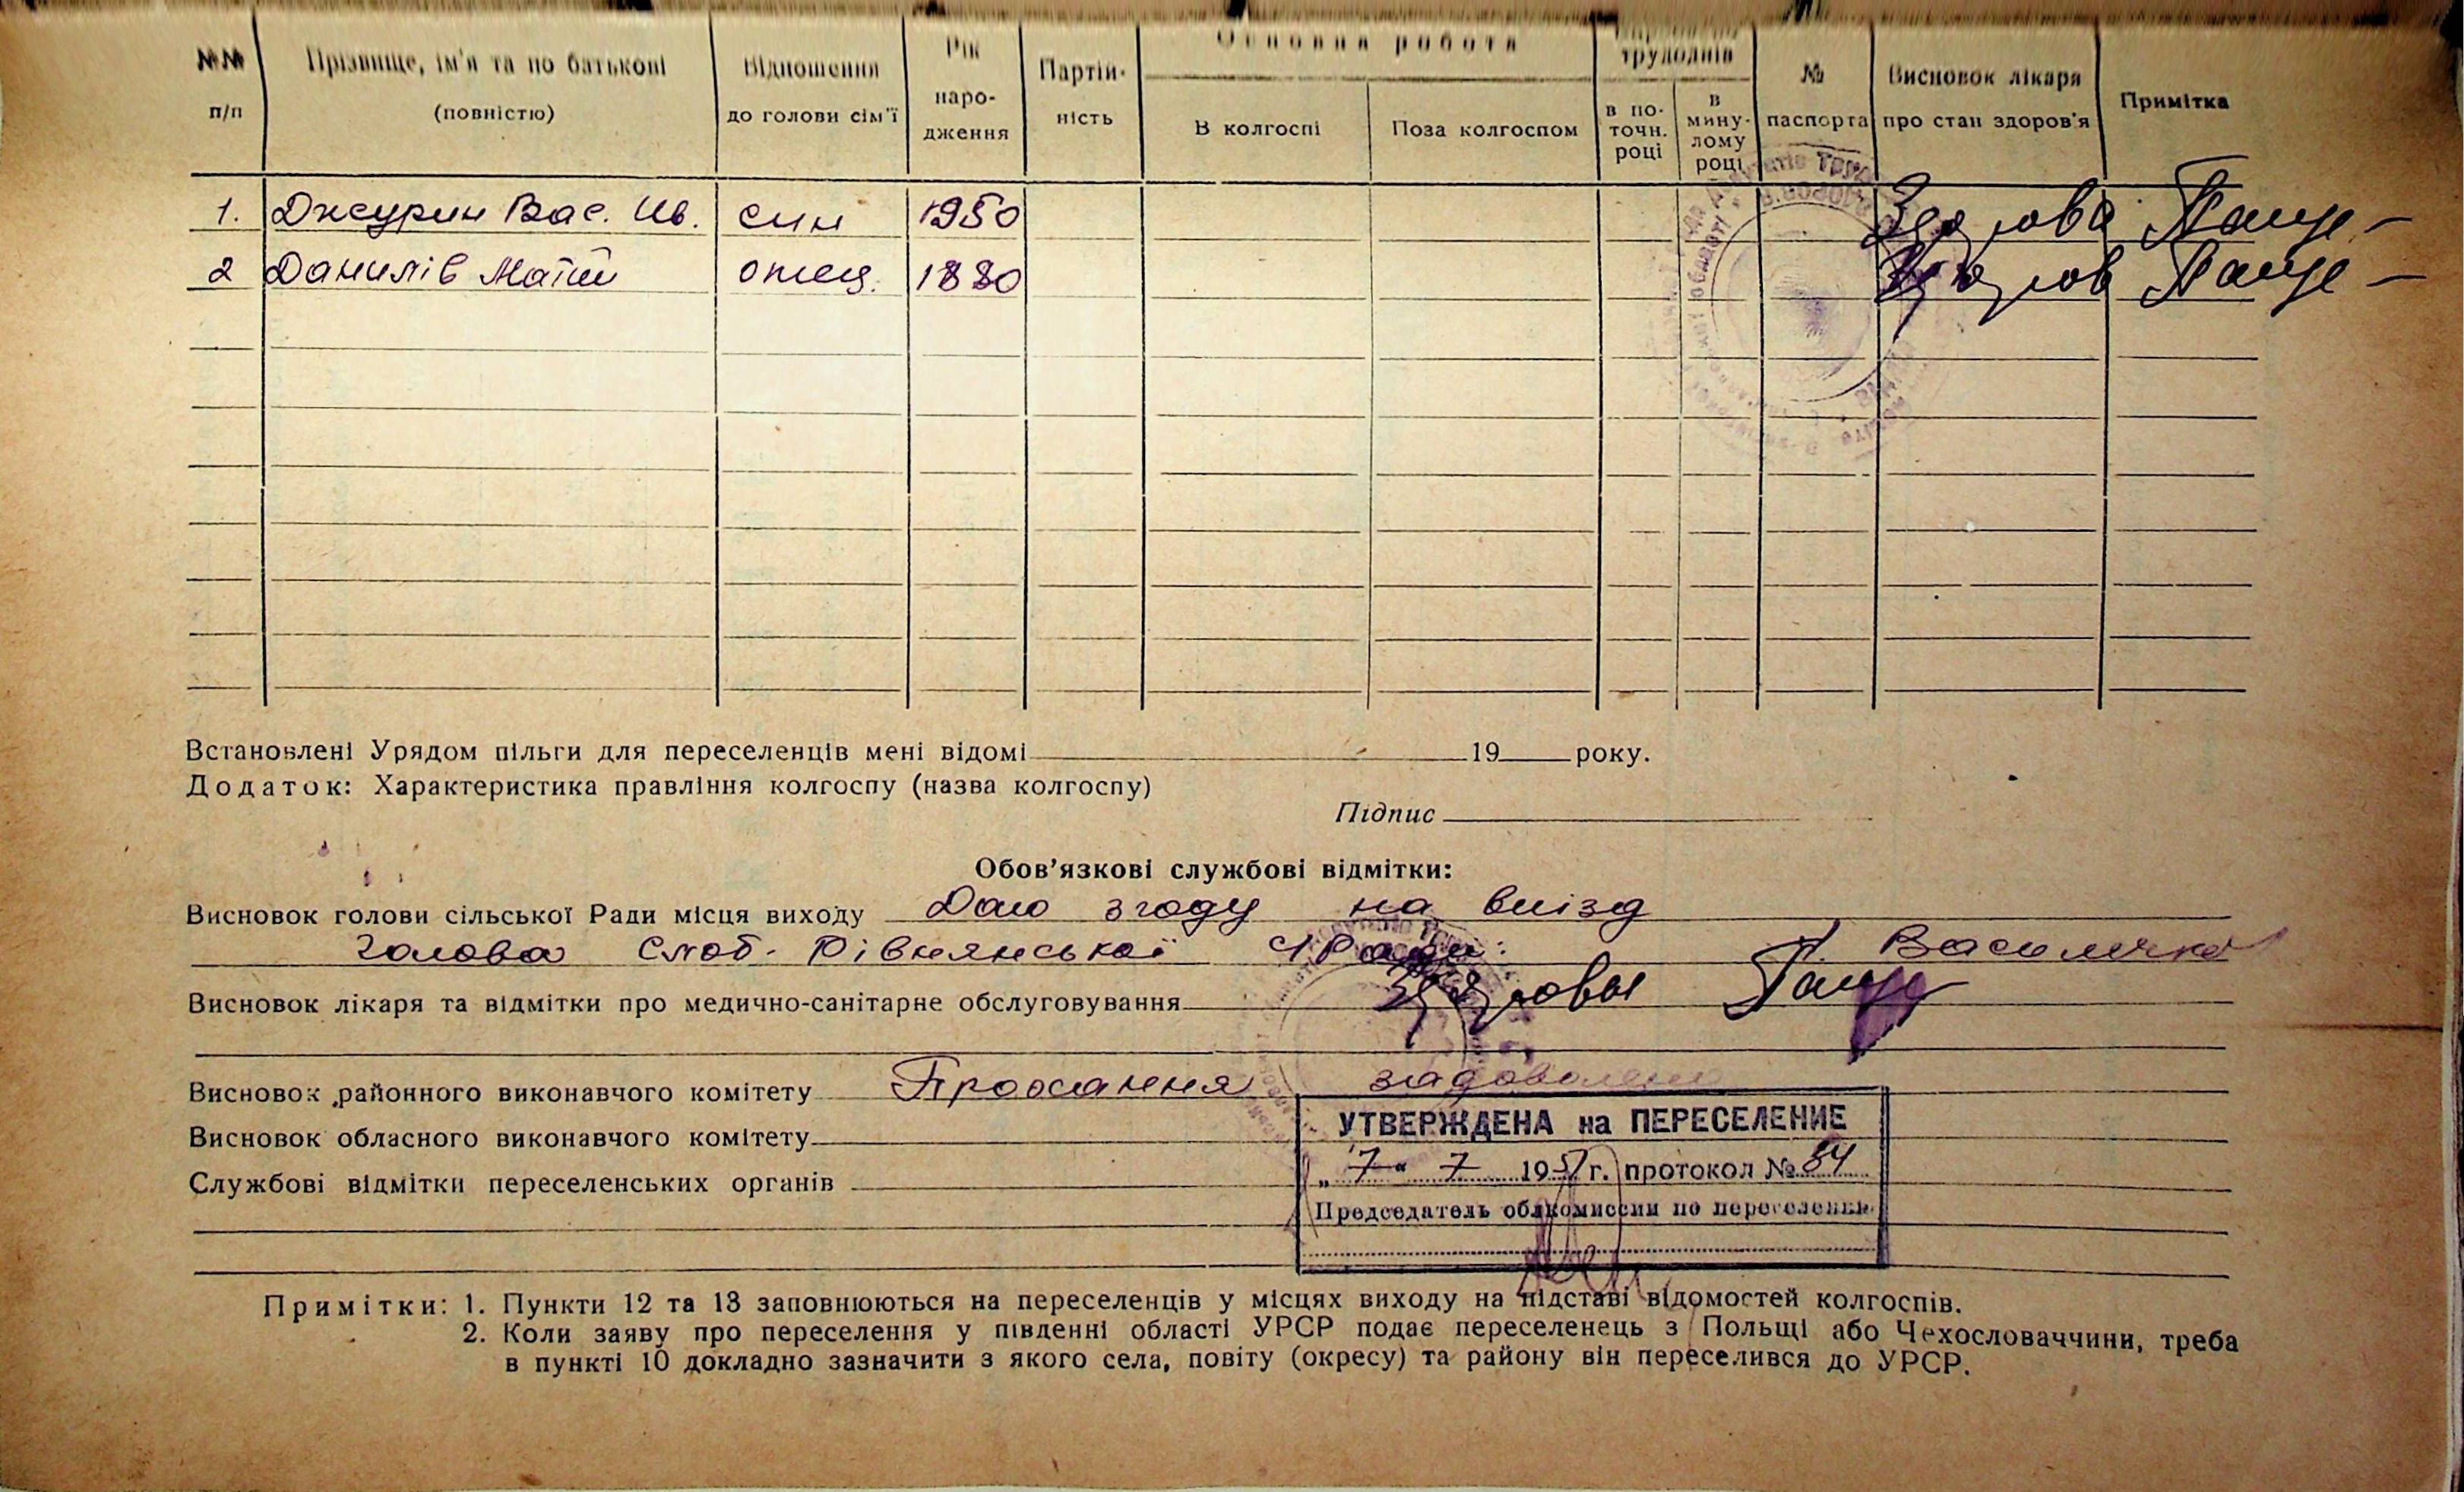 №№ п/п
Прізвище, ім'я та по батькові (повністю)
Відношення до голови сім'ї
Рік народження
Партійність
Основна робота
В колгоспі
Поза колгоспом
трудоднів
в поточн. році
в минулому році
№ паспорта
Висновок лікаря про стан здоров'я
Примітка
1. Джурин Вас. Ів. син 1950 Здорова
2 Данилів Матій отец. 1880 Здоров
Встановлені Урядом пільги для переселенців мені відомі 19 року.
Додаток: Характеристика правління колгоспу (назва колгоспу)
Підпис
Обов'язкові службові відмітки:
Висновок голови сільської Ради місця виходу Даю згоду на виїзд
Голова Слоб. Рівнянської с/Ради:
Висновок лікаря та відмітки про медично-санітарне обслуговування Здорові
Висновок районного виконавчого комітету Прохання задоволено
Висновок обласного виконавчого комітету
Службові відмітки переселенських органів
УТВЕРЖДЕНА на ПЕРЕСЕЛЕНИЕ
„7" 7 1951 г. протокол № 84
Председатель облкомиссии по переселению
Примітки: 1. Пункти 12 та 13 заповнюються на переселенців у місцях виходу на підставі відомостей колгоспів.
2. Коли заяву про переселення у південні області УРСР подає переселенець з Польщі або Чехословаччини, треба
в пункті 10 докладно зазначити з якого села, повіту (окресу) та району він переселився до УРСР.